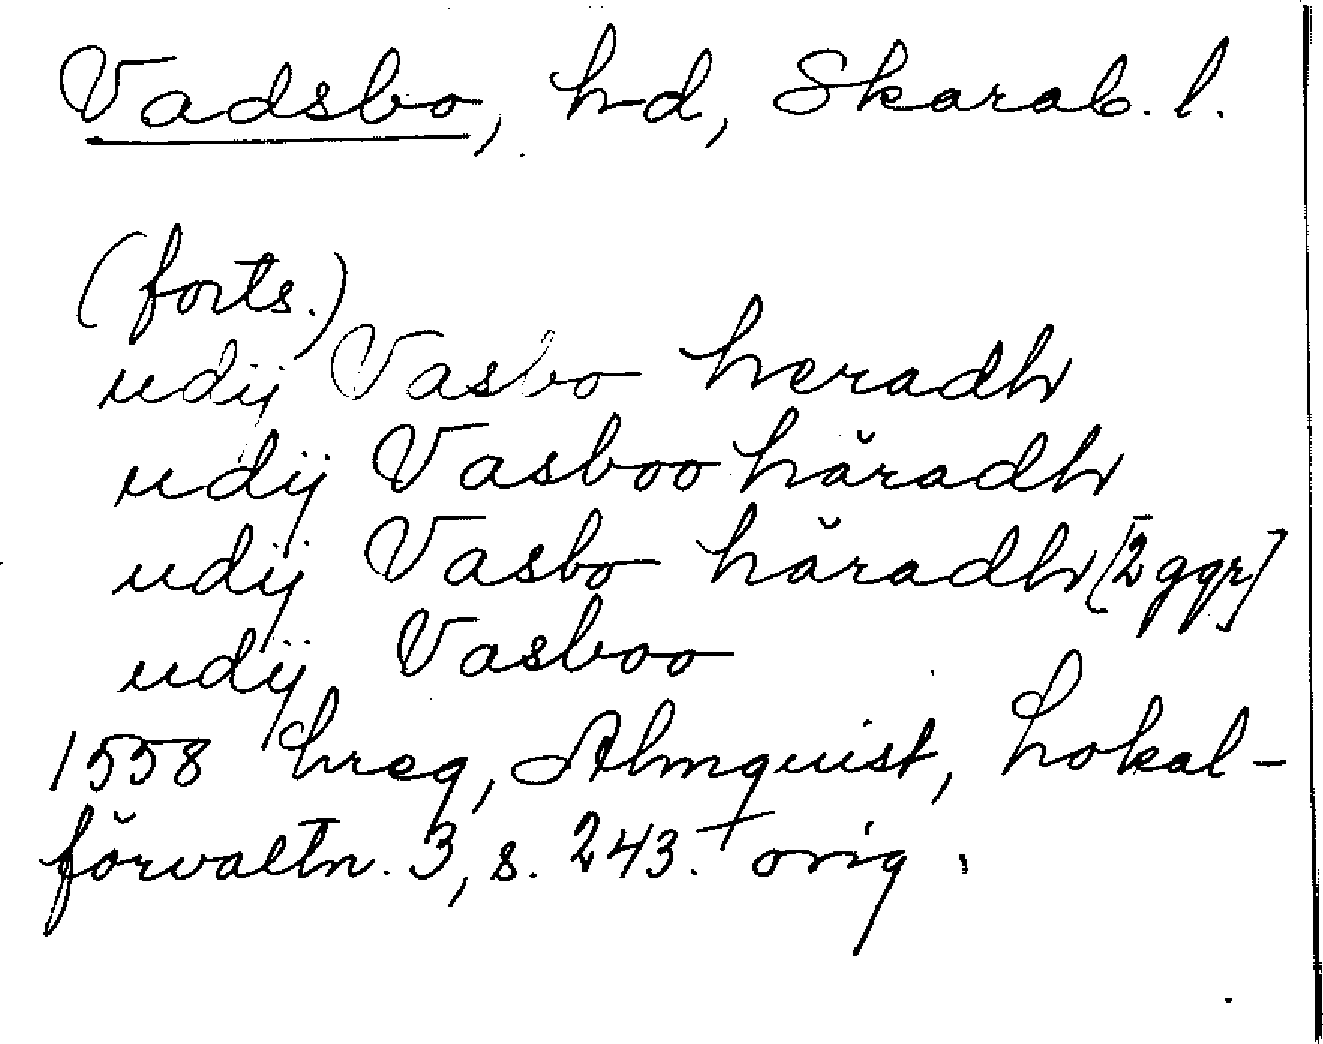 Vadsbo, hd, Skarab. l.
(forts.)
udij Vasbo heradh
udij Vasboo häradh
udij Vasbo häradh [2 ggr]
udij Vasboo
1558 hreg, Almquist, Lokal-
förvaltn. 3, s. 243. + orig.